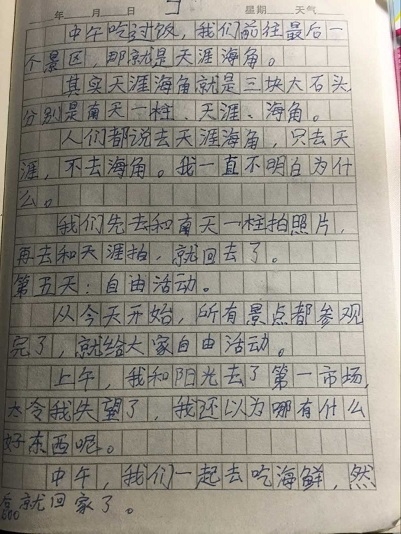 年 月 日 星期 天气
中午吃过饭，我们前往最后一
个景区，那就是天涯海角。
其实天涯海角就是三块大石头，
分别是南天一柱、天涯、海角。
人们都说去天涯海角，只去天
涯，不去海角。我一直不明白为什
么。
我们先去和南天一柱拍照片，
再去和天涯拍，就回去了。
第五天：自由活动。
从今天开始，所有景点都参观
完了，就给大家自由活动。
上午，我和阳光去了第一市场，
太令我失望了，我还以为哪有什么
好东西呢。
中午，我们一起去吃海鲜，然
后就回家了。